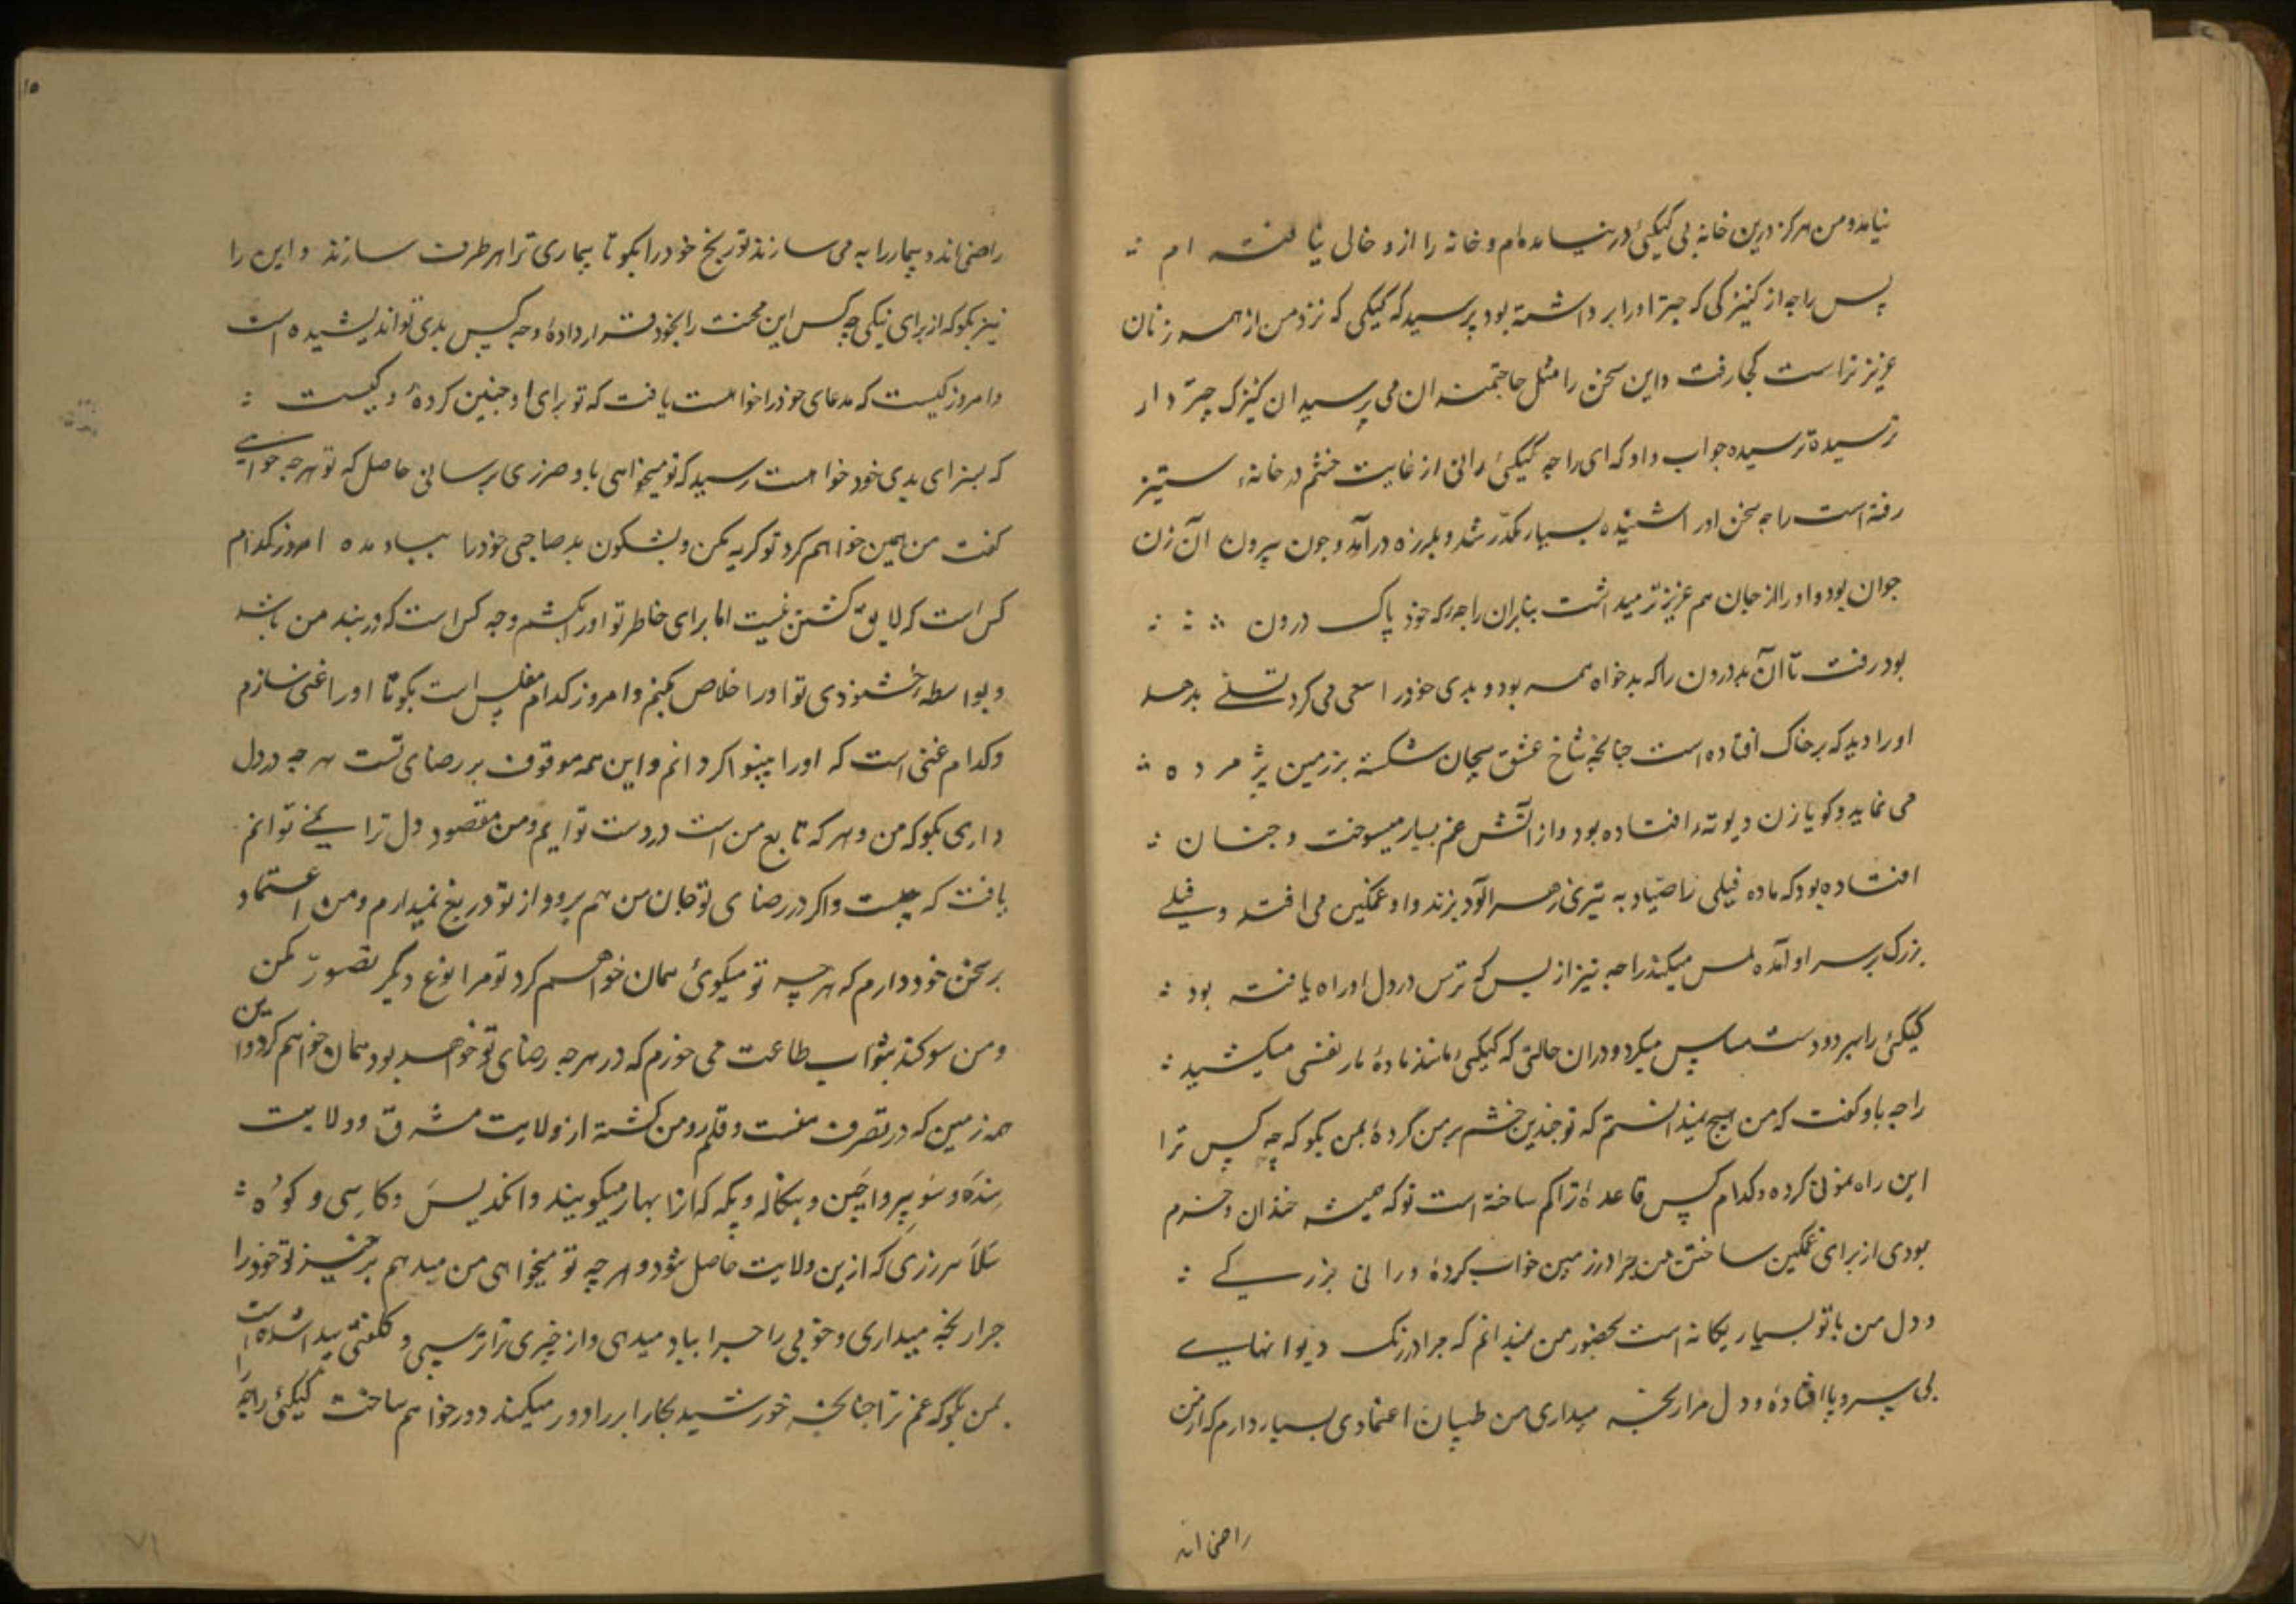 نیامد و من هرکز درین خانه بی کیکئ در نیامده‌ام و خانه را ازو خالی نیافته ام
پس راجه از کنیزکی که چتر او را برداشته بود پرسید که کیکی که نزد من از همه زنان
عزیزتر است کجا رفت و این سخن را مثل حاجتمندان می پرسید ان کنیزک چتر دار
ترسیده ترسیده جواب داد که ای راجه کیکئ رانی از غایت خشم در خانهٔ ستیز
رفته است راجه سخن او را شنیده بسیار مکدّر شد و بلرزه درآمد و چون پیرون آن زن
جوان بود و او را از جان هم عزیزتر میداشت بنابران راجه که خود پاک درون
بود رفت تا آن بددرون را که بدخواه همه بود و بدی خود را سعی می کرد تسلے بدهد
او را دید که برخاک افتاده است چنانچه شاخ عشق پیچان شکسته بر زمین پژمرده
می نماید و کویا زن دیوته افتاده بود و از آتش غم بسیار میسوخت و چنان
افتاده بود که ماده فیلی را صیّاد به تیری زهرآلود بزند و او غمکین می افتد و فیلے
بزرک بر سر او آمده لمس میکند راجه نیز از بس که ترس در دل او راه یافته بود
کیکئ را بهر دو دست مساس میکرد و دران حالتی که کیکئ مانند مادهٔ مار نفس میکشید
راجه باو کفت که من هیچ نمیدانستم که تو چندین خشم بر من کردهٔ بمن بکو که چه کس ترا
این راه نمونی کرده و کدام کس قاعدهٔ ترا کم ساخته است تو که همیشه خندان و خرم
بودی از برای غمکین ساختن من چرا در زمین خواب کردهٔ و رانی بزرکے
و دل من با تو بسیار یکانه است بحضور من نمیدانم که چرا در رنک دیوانهایے
بی سر و پا افتادهٔ و دل مرا رنجه میداری من طبیبان اعتمادی بسیار دارم که از من
راضی اند
راضی اند و بیمار را به می سازند تو رنج خود را بکو تا بیماری ترا برطرف سازند و این را
نیز بکو که از برای نیکی چه کس این محنت را بخود قرار دادهٔ و چه کس بدی تو اندیشیده است
و امروز کیست که مدعای خود را خواهد یافت که تو برای او چنین کردهٔ و کیست
که بسزای بدی خود خواهد رسید که تو میخواهی باو ضرری برسانی حاصل که تو هرچه خواهے
کفت من همین خواهم کرد تو کریه مکن و بشکون بد صاحبی خود را بباد مده امروز کدام
کس است که لایق کشتن نیست اما برای خاطر تو او را بکشم و چه کس است که در بند من باشد
و بواسطهٔ خشنودی تو او را خلاص کنم و امروز کدام مفلس است بکو تا او را غنی سازم
و کدام غنی است که او را بینوا کردانم و این همه موقوف بر رضای تست هرچه در دل
داری بکو که من و هر که تابع من است در دست توایم و من مقصود دل ترا نمے توانم
یافت که چیست و اکر در رضای تو جان من هم برود از تو دریغ نمیدارم و من اعتماد
برسخن خود دارم که هرچه تو میکوئ همان خواهم کرد تو مرا نوع دیکر تصوّر مکن
و من سوکند بثواب طاعت می خورم که در هرچه رضای تو خواهد بود همان خواهم کرد و این
همه زمین که در تصرف منست و قلمرو من کشته از ولایت مشرق و ولایت
سنده و سوبیر و اچین و بنکاله و یکه که انرا بهار میکویند و انکدیس و کاسی و کوه
سلا هر زری که ازین ولایت حاصل شود و هرچه تو میخواهی من میدهم برخیز تو خود را
چرا رنجه میداری و خوبی را چرا بباد میدهی و از چیزی ترا ترسی و کلفتی پیدا شده است
بمن بکو که غم ترا چنانچه خورشید بخار ابر را دور میکند دور خواهم ساخت کیکئ راجه را